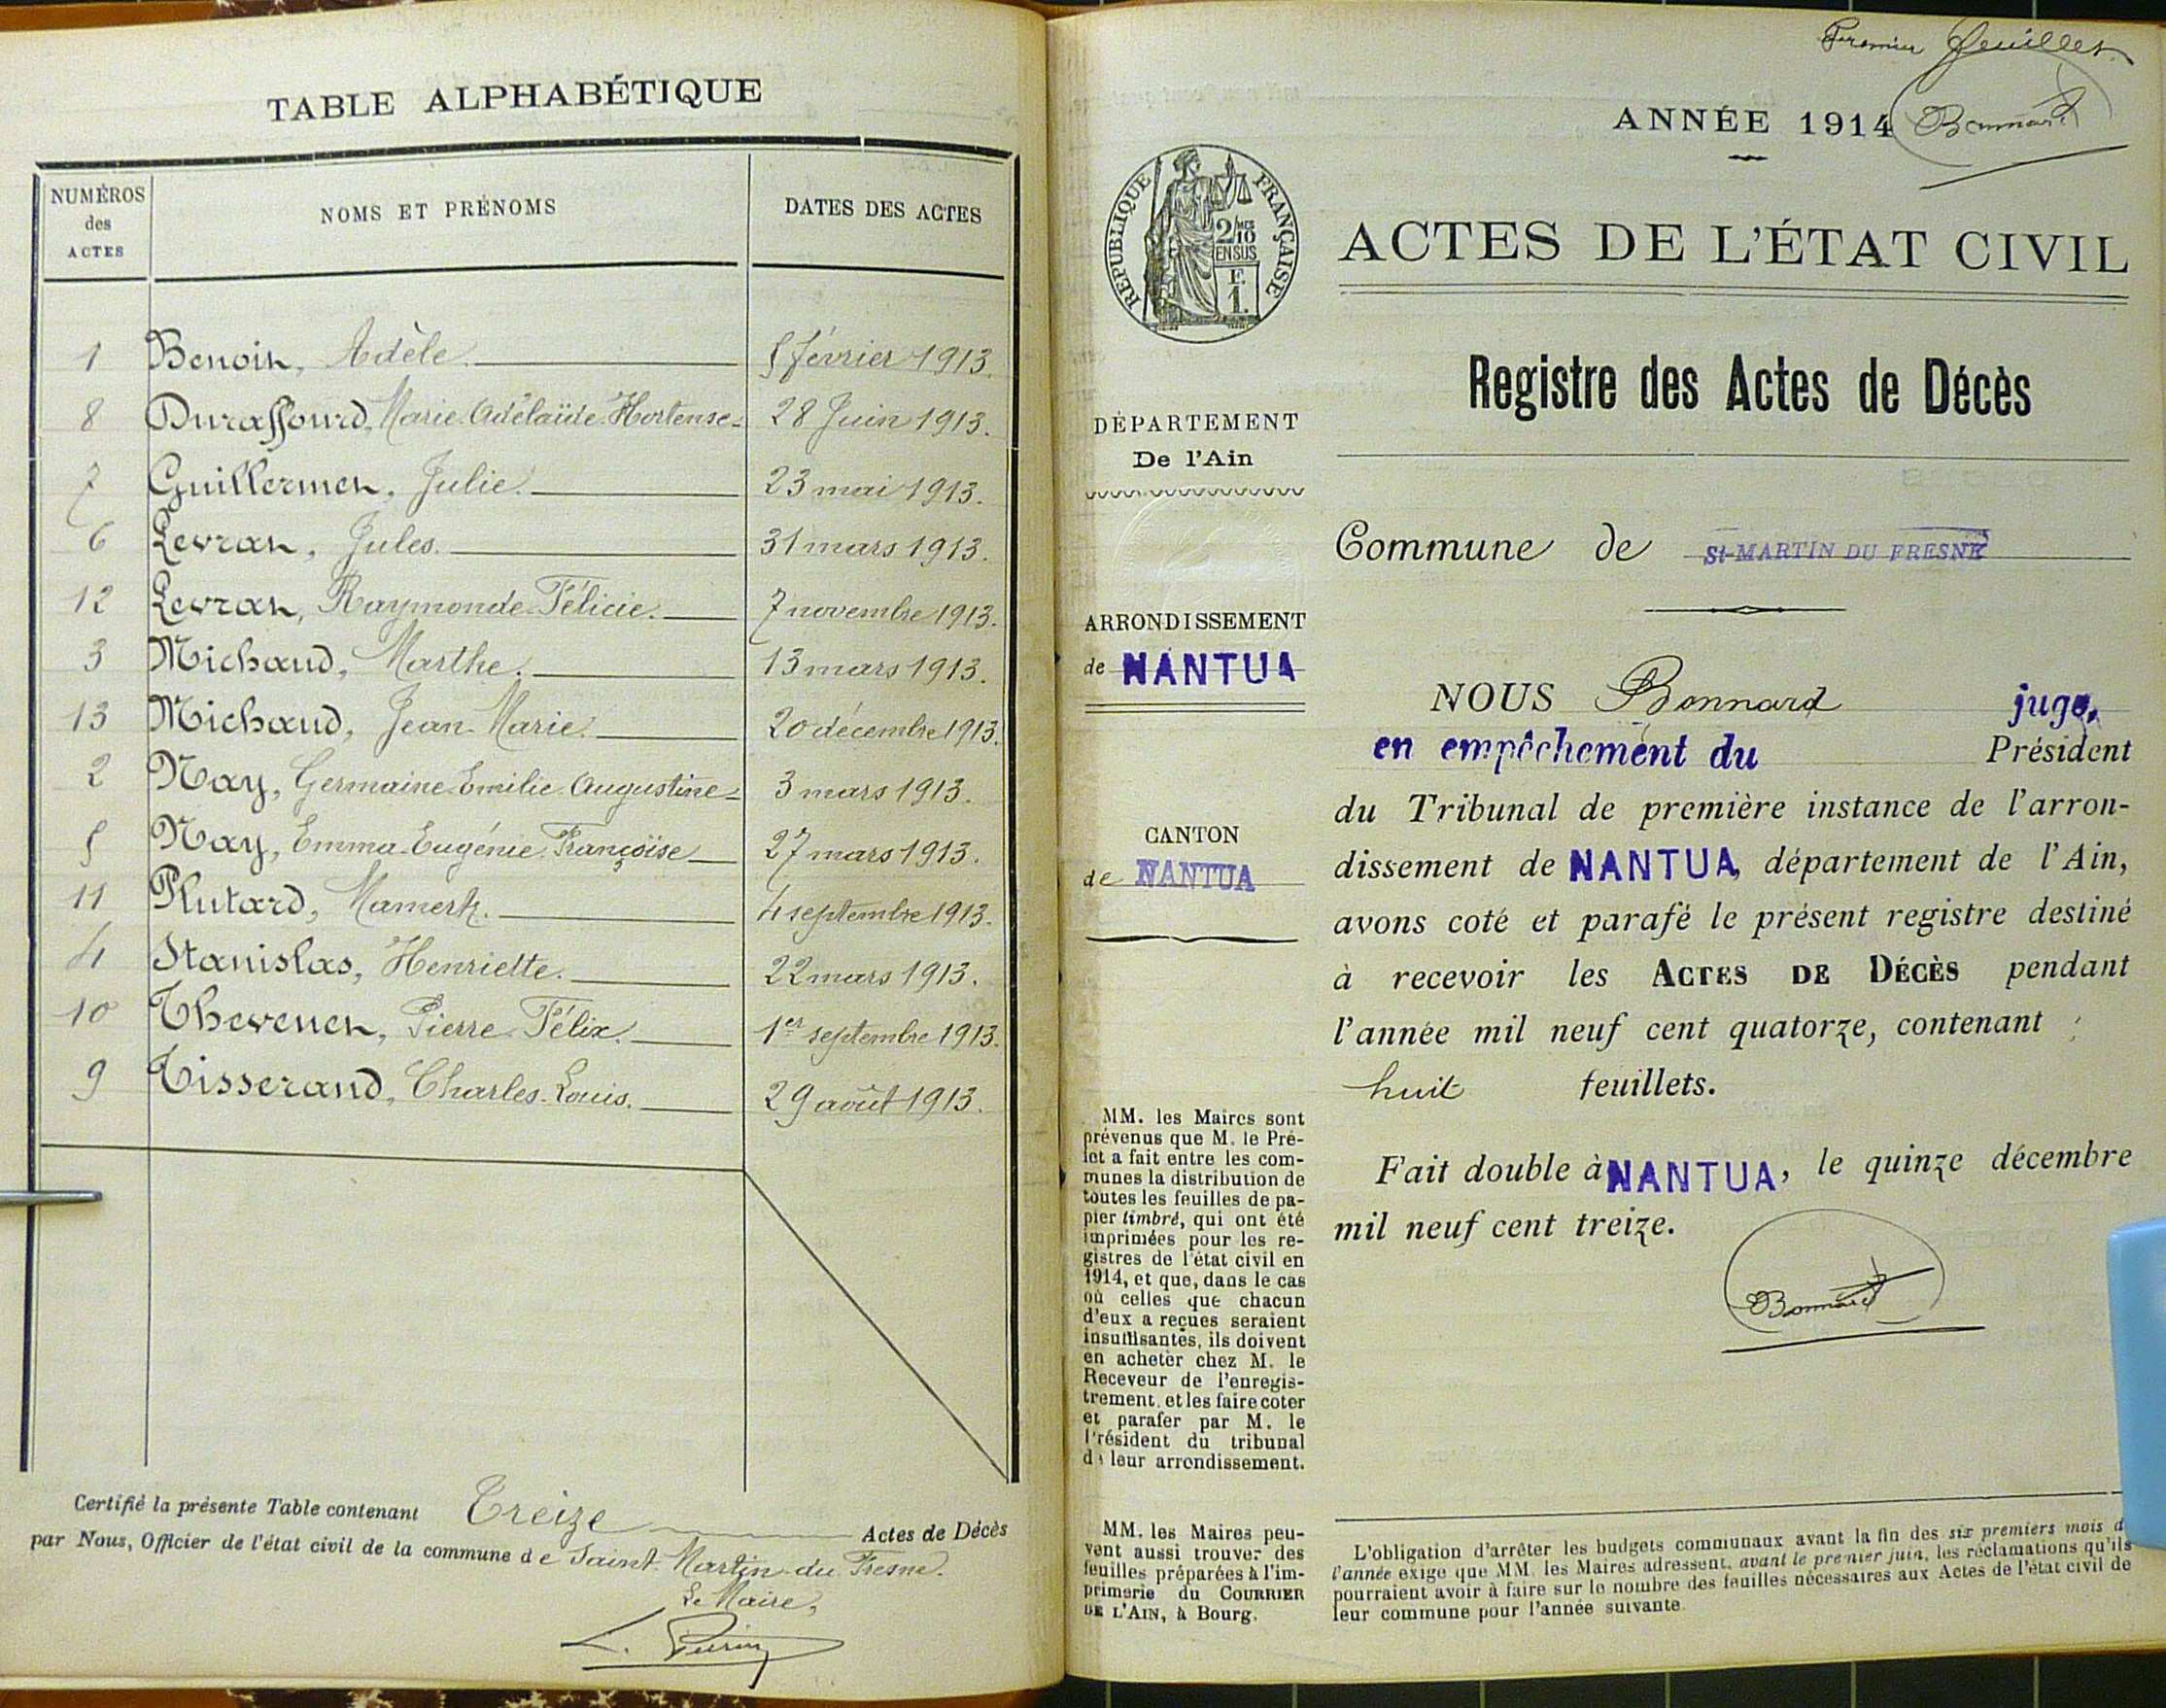 TABLE ALPHABÉTIQUE
NUMÉROS des ACTES
NOMS ET PRÉNOMS
DATES DES ACTES
1 Benoit, Adèle. 5 février 1913.
8 Duraffourd, Marie Adélaïde Hortense 28 Juin 1913.
7 Guillermet, Julie. 23 mai 1913.
6 Levrat, Jules. 31 mars 1913.
12 Levrat, Raymonde Félicie. 7 novembre 1913.
3 Michaud, Marthe. 13 mars 1913.
13 Michaud, Jean-Marie. 20 décembre 1913.
2 Nay, Germaine Emilie Augustine 3 mars 1913.
5 Nay, Emma Eugénie Françoise 27 mars 1913.
11 Plutard, Mamert. 4 septembre 1913.
4 Stanislas, Henriette. 22 mars 1913.
10 Thevenet, Pierre Félix. 1er septembre 1913.
9 Tisserand, Charles Louis. 29 août 1913.
Certifié la présente Table contenant Treize Actes de Décès
par Nous, Officier de l'état civil de la commune de Saint Martin-du Fresne.
Le Maire,
Premier feuillet
Bonnard
ANNÉE 1914
RÉPUBLIQUE FRANÇAISE
2/10 MES
EN SUS
F.
1.
ACTES DE L'ÉTAT CIVIL
Registre des Actes de Décès
DÉPARTEMENT
De l'Ain
Commune de St-MARTIN DU FRESNE
ARRONDISSEMENT
de NANTUA
CANTON
de NANTUA
NOUS Bonnard juge,
en empêchement du Président
du Tribunal de première instance de l'arron-
dissement de NANTUA, département de l'Ain,
avons coté et parafé le présent registre destiné
à recevoir les ACTES DE DÉCÈS pendant
l'année mil neuf cent quatorze, contenant
huit feuillets.
Fait double à NANTUA, le quinze décembre
mil neuf cent treize.
Bonnard
MM. les Maires sont
prévenus que M. le Pré-
fet a fait entre les com-
munes la distribution de
toutes les feuilles de pa-
pier timbré, qui ont été
imprimées pour les re-
gistres de l'état civil en
1914, et que, dans le cas
où celles que chacun
d'eux a reçues seraient
insuffisantes, ils doivent
en acheter chez M. le
Receveur de l'enregis-
trement, et les faire coter
et parafer par M. le
Président du tribunal
de leur arrondissement.
MM. les Maires peu-
vent aussi trouver des
feuilles préparées à l'im-
primerie du COURRIER
DE L'AIN, à Bourg.
L'obligation d'arrêter les budgets communaux avant la fin des six premiers mois de
l'année exige que MM. les Maires adressent, avant le premier juin, les réclamations qu'ils
pourraient avoir à faire sur le nombre des feuilles nécessaires aux Actes de l'état civil de
leur commune pour l'année suivante.